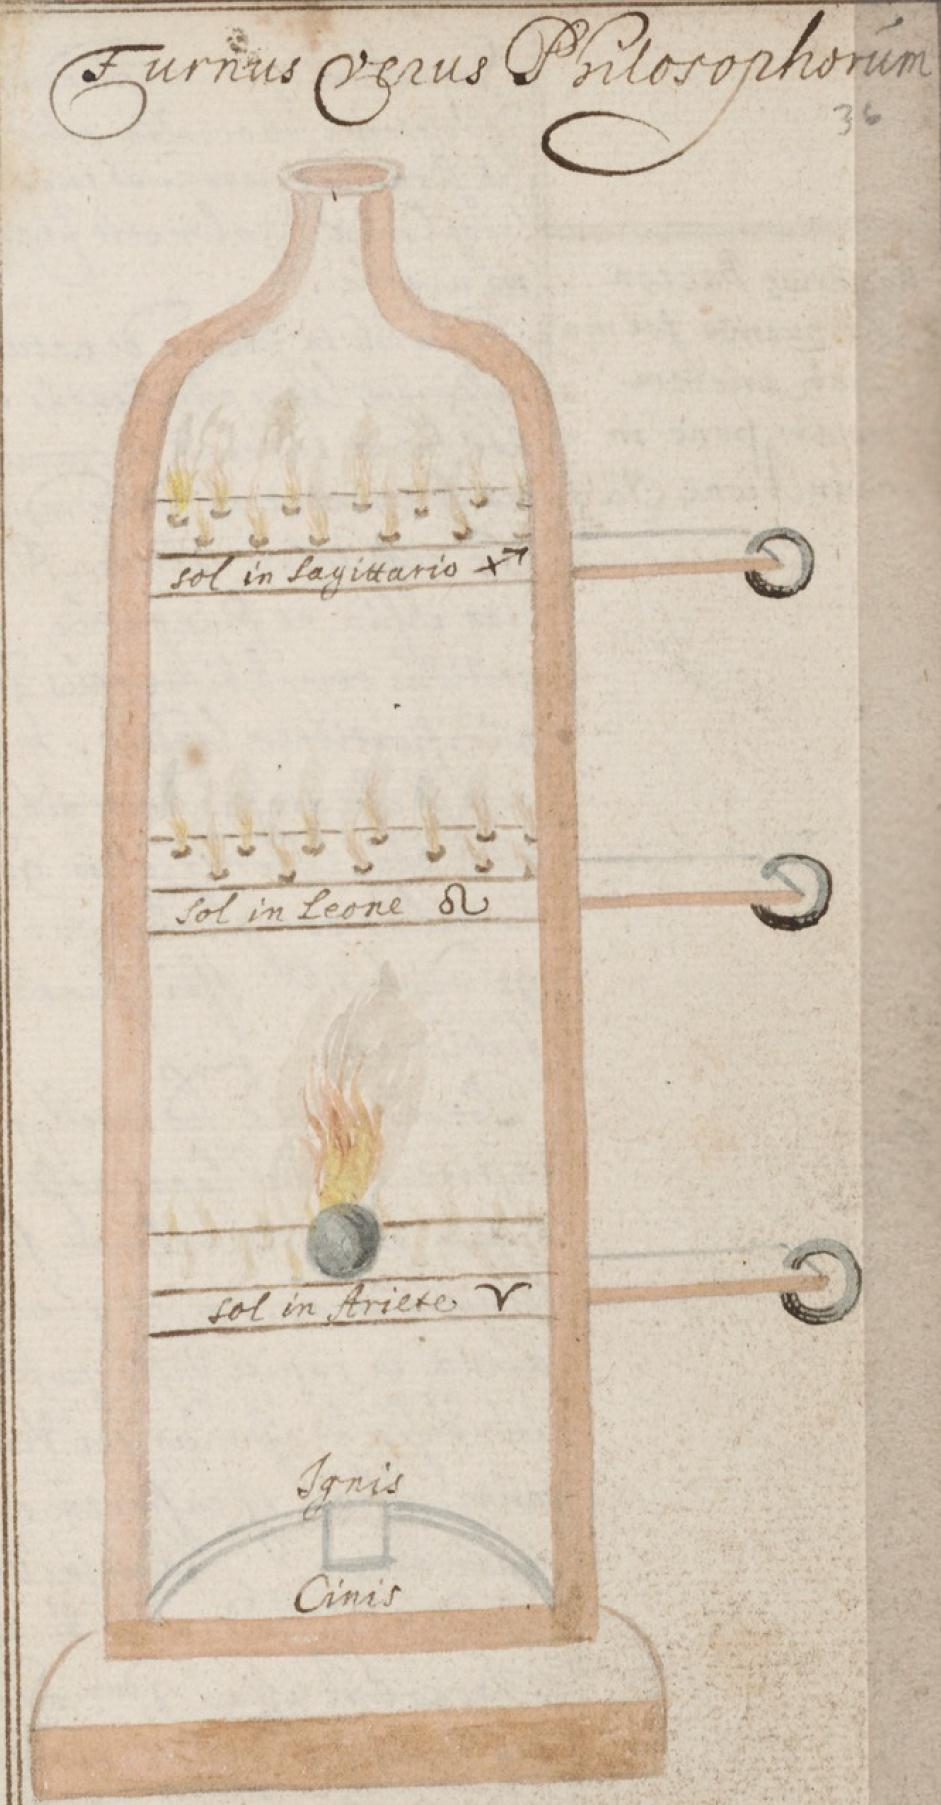 Furnus verus Philosophorum
36
sol in Sagittario ♐
sol in Leone ♌
sol in Ariete ♈
Ignis
Cinis